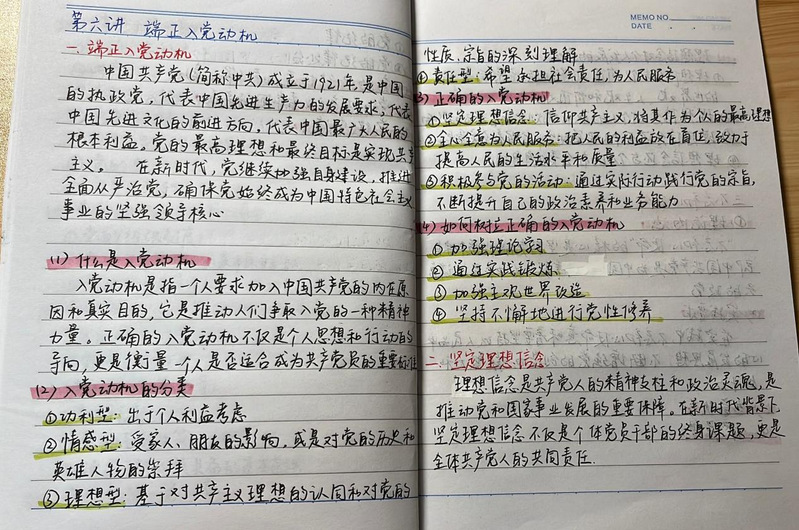 第六讲 端正入党动机
一. 端正入党动机
中国共产党(简称中共)成立于1921年,是中国
的执政党,代表中国先进生产力的发展要求,代表
中国先进文化的前进方向,代表中国最广大人民的
根本利益。党的最高理想和最终目标是实现共产
主义。 在新时代,党继续地强自身建设,推进
全面从严治党,确保党始终成为中国特色社会主义
事业的坚强领导核心
(1) 什么是入党动机
入党动机是指一个人要求加入中国共产党的内在原
因和真实目的,它是推动人们争取入党的一种精神
力量。正确的入党动机不仅是个人思想和行动的
导向,更是衡量一个人是否适合成为共产党员的重要标准
(2) 入党动机的分类
①功利型:出于个人利益考虑
②情感型:受家人、朋友的影响,或是对党的历史和
英雄人物的崇拜
③理想型:基于对共产主义理想的认同和对党的
MEMO NO.
DATE
性质、宗旨的深刻理解
④责任型:希望承担社会责任,为人民服务
(3) 正确的入党动机
①坚定理想信念:信仰共产主义,将其作为个人的最高理想
②全心全意为人民服务:把人民的利益放在首位,致力于
提高人民的生活水平和质量
③积极参与党的活动:通过实际行动践行党的宗旨,
不断提升自己的政治素养和业务能力
(4) 如何树立正确的入党动机
① 加强理论学习
② 通过实践锻炼
③ 加强主观世界改造
④ 坚持不懈地进行党性修养
二. 坚定理想信念
理想信念是共产党人的精神支柱和政治灵魂,是
推动党和国家事业发展的重要保障。在新时代背景下,
坚定理想信念不仅是个体党员干部的终身课题,更是
全体共产党人的共同责任.